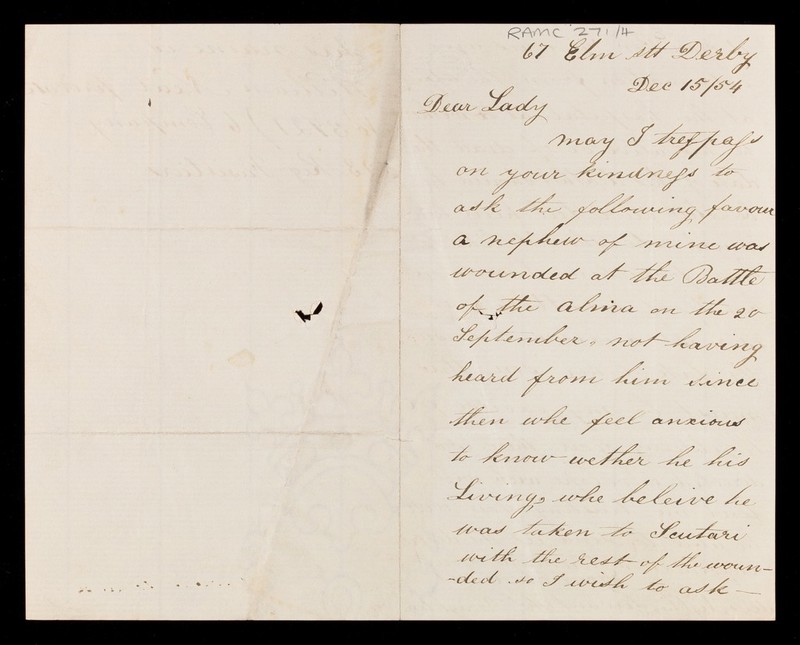 RAMC 271/4
67 Elm stt Derby
Dec 15/54
Dear Lady
may I tresspass
on your kindness to
ask the following favour
a nephew of mine was
wounded at the Battle
of the alma on the 20
September. not having
heard from him since
then whe feel anxious
to know wether he his
Living, whe beleive he
was taken to Scutari
with the rest of the woun-
-ded so I wish to ask —